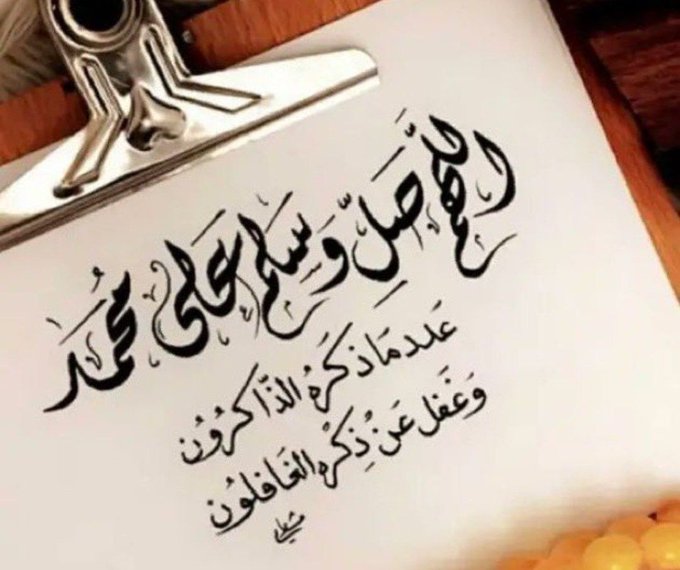 اللَّهم صَلِّ وَسلم على مُحمد
عَدد مَا ذكَرَهُ الذَّاكرُوُن
وَغَفل عَن ذِكْرِه الغَافلوُن